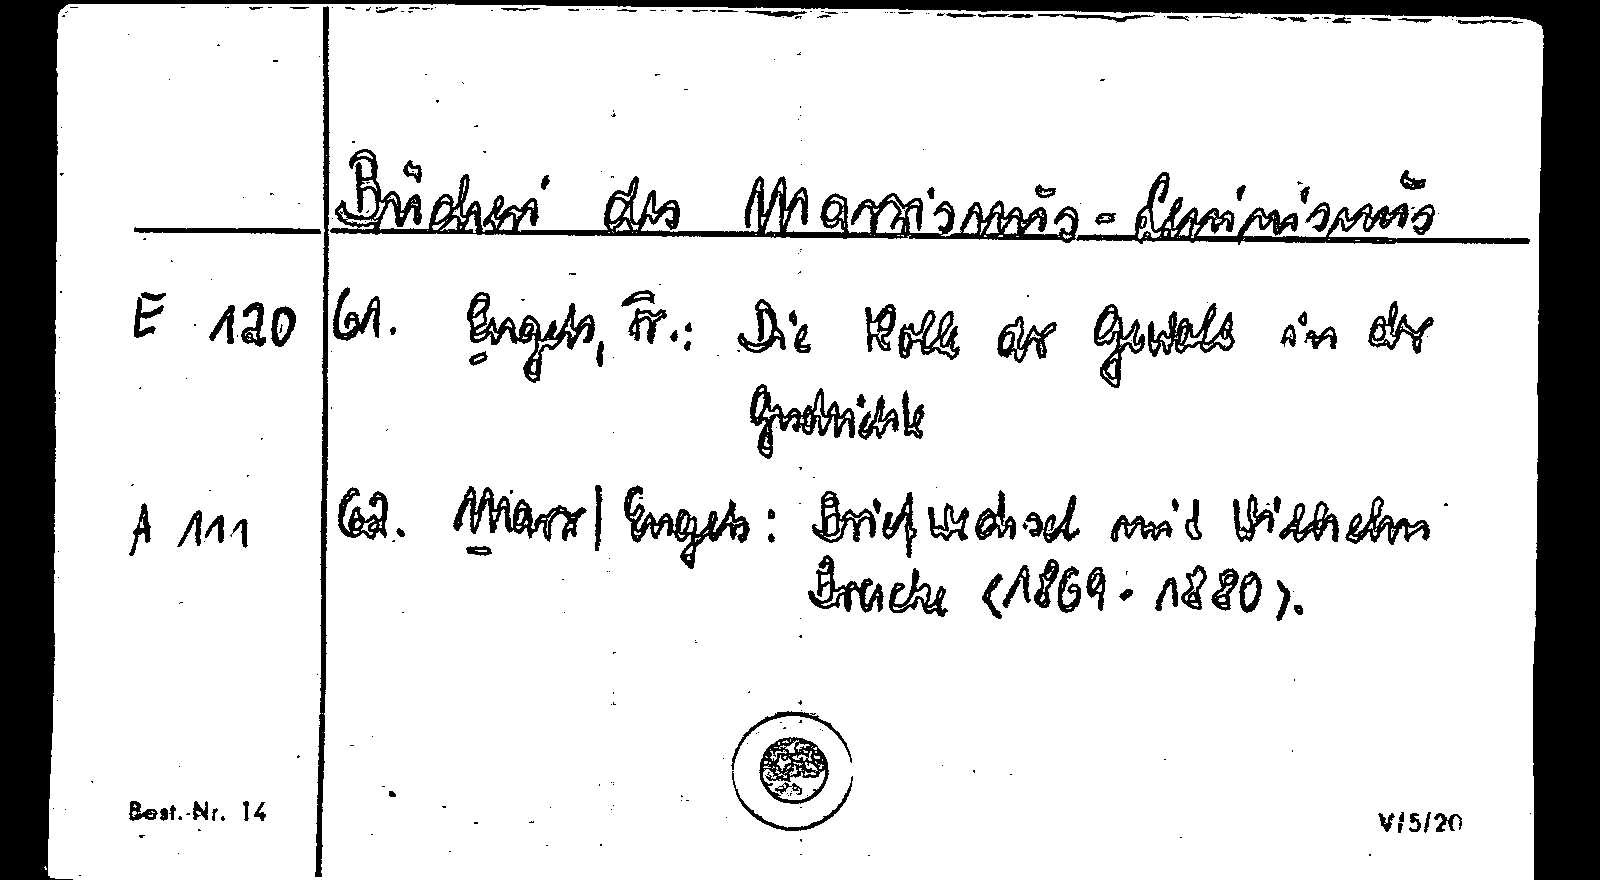 Bücherei des Marxismus-Leninismus
E 120 61. Engels, Fr.: Die Rolle der Gewalt in der
Geschichte
A 111 62. Marx/Engels: Briefwechsel mit Wilhelm
Bracke (1869-1880).
Best.-Nr. 14 V/5/20